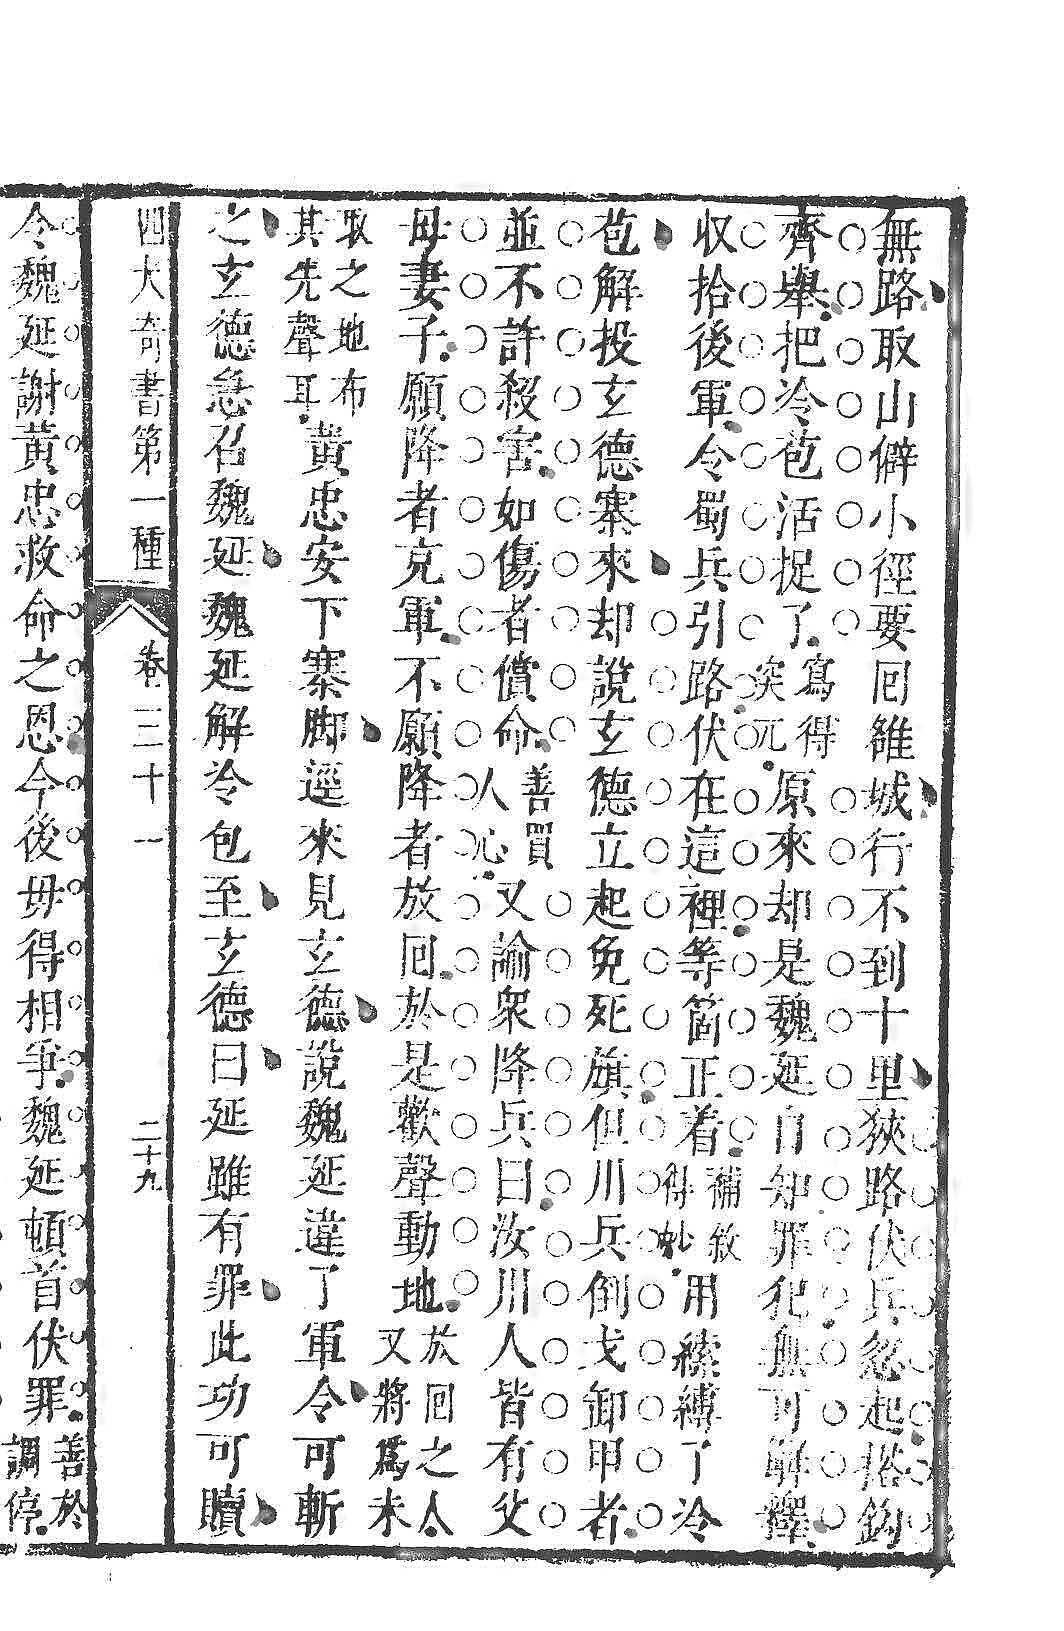 無路取山僻小徑要回雒城行不到十里狹路伏兵忽起搭鈎
齊舉把冷苞活捉了寫得突兀原來却是魏延自知罪犯無可解釋
収拾後軍令蜀兵引路伏在這裡等箇正着補敘得妙用索縛了冷
苞解投玄德寨來却說玄德立起免死旗但川兵倒戈卸甲者
並不許殺害如傷者償命善買人心又諭衆降兵曰汝川人皆有父
母妻子願降者充軍不願降者放回於是歡聲動地放回之人又將爲未
取之地布其先聲耳黃忠安下寨脚逕來見玄德說魏延違了軍令可斬
之玄德急召魏延魏延解冷包至玄德曰延雖有罪此功可贖
四大奇書第一種 卷三十一 二十九
令魏延謝黃忠救命之恩今後毋得相爭魏延頓首伏罪善於調停